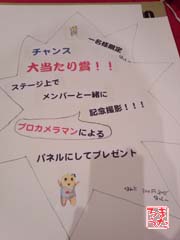 一名様限定
チャンス
大当たり賞！！
ステージ上で
メンバーと一緒に
記念撮影！！！
プロカメラマンによる
パネルにしてプレゼント